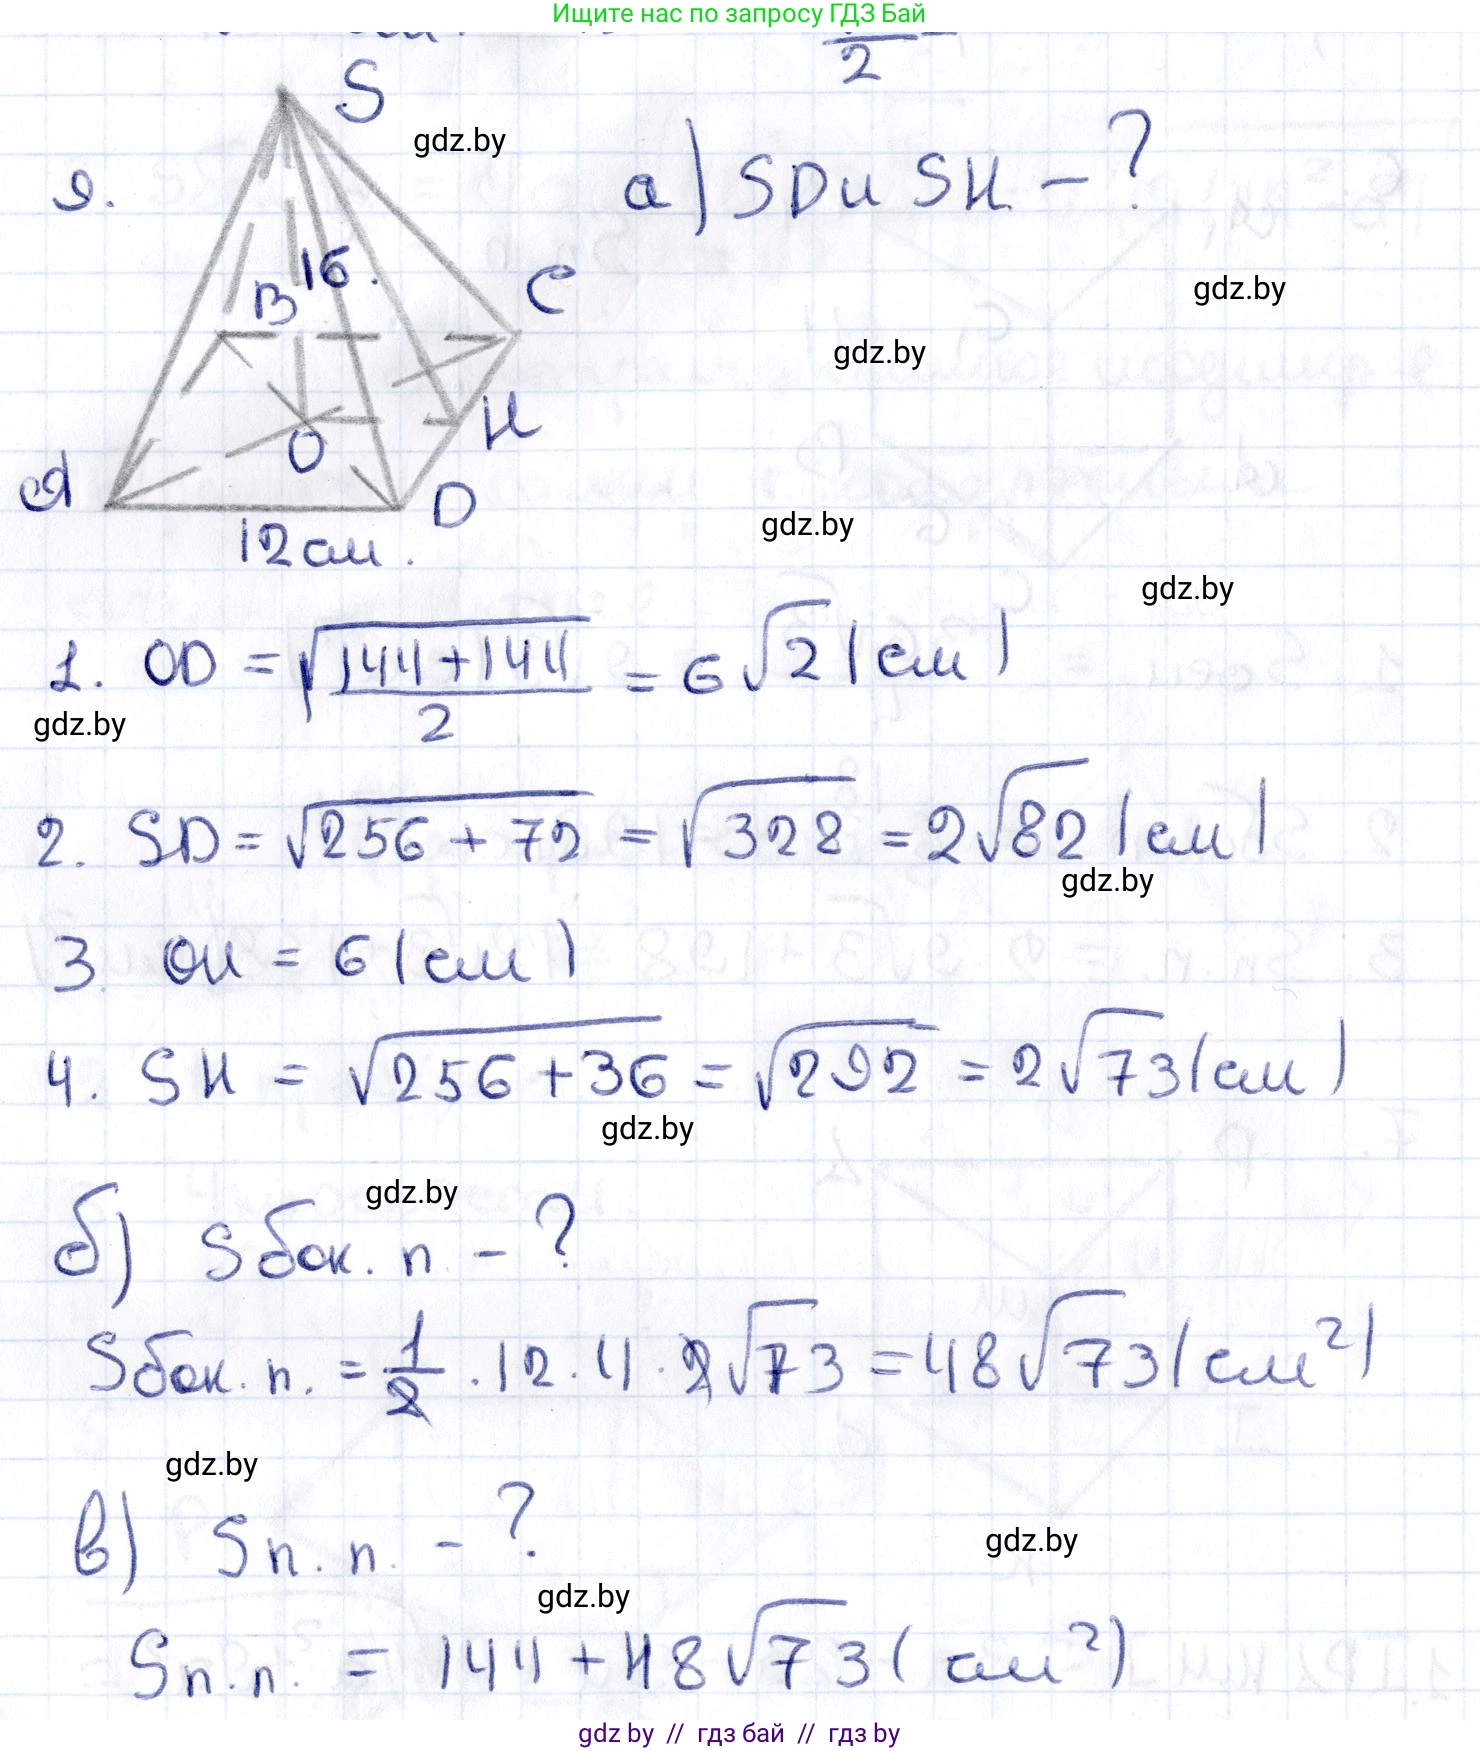 Ищите нас по запросу ГДЗ Бай
2
S
gdz.by
9.
а) SD и SH - ?
16.
B
C
gdz.by
gdz.by
H
O
A
D
gdz.by
12 см.
gdz.by
1. OD = √(144+144)/2 = 6√2 (см)
gdz.by
2. SD = √256 + 72 = √328 = 2√82 (см)
gdz.by
3. OH = 6 (см)
4. SH = √256 + 36 = √292 = 2√73 (см)
gdz.by
gdz.by
б) Sбок. п - ?
Sбок. п. = 1/2 · 12 · 4 · 2√73 = 48√73 (см²)
gdz.by
в) Sп. п. - ?
gdz.by
gdz.by
Sп. п. = 144 + 48√73 (см²)
gdz by // гдз бай // гдз by